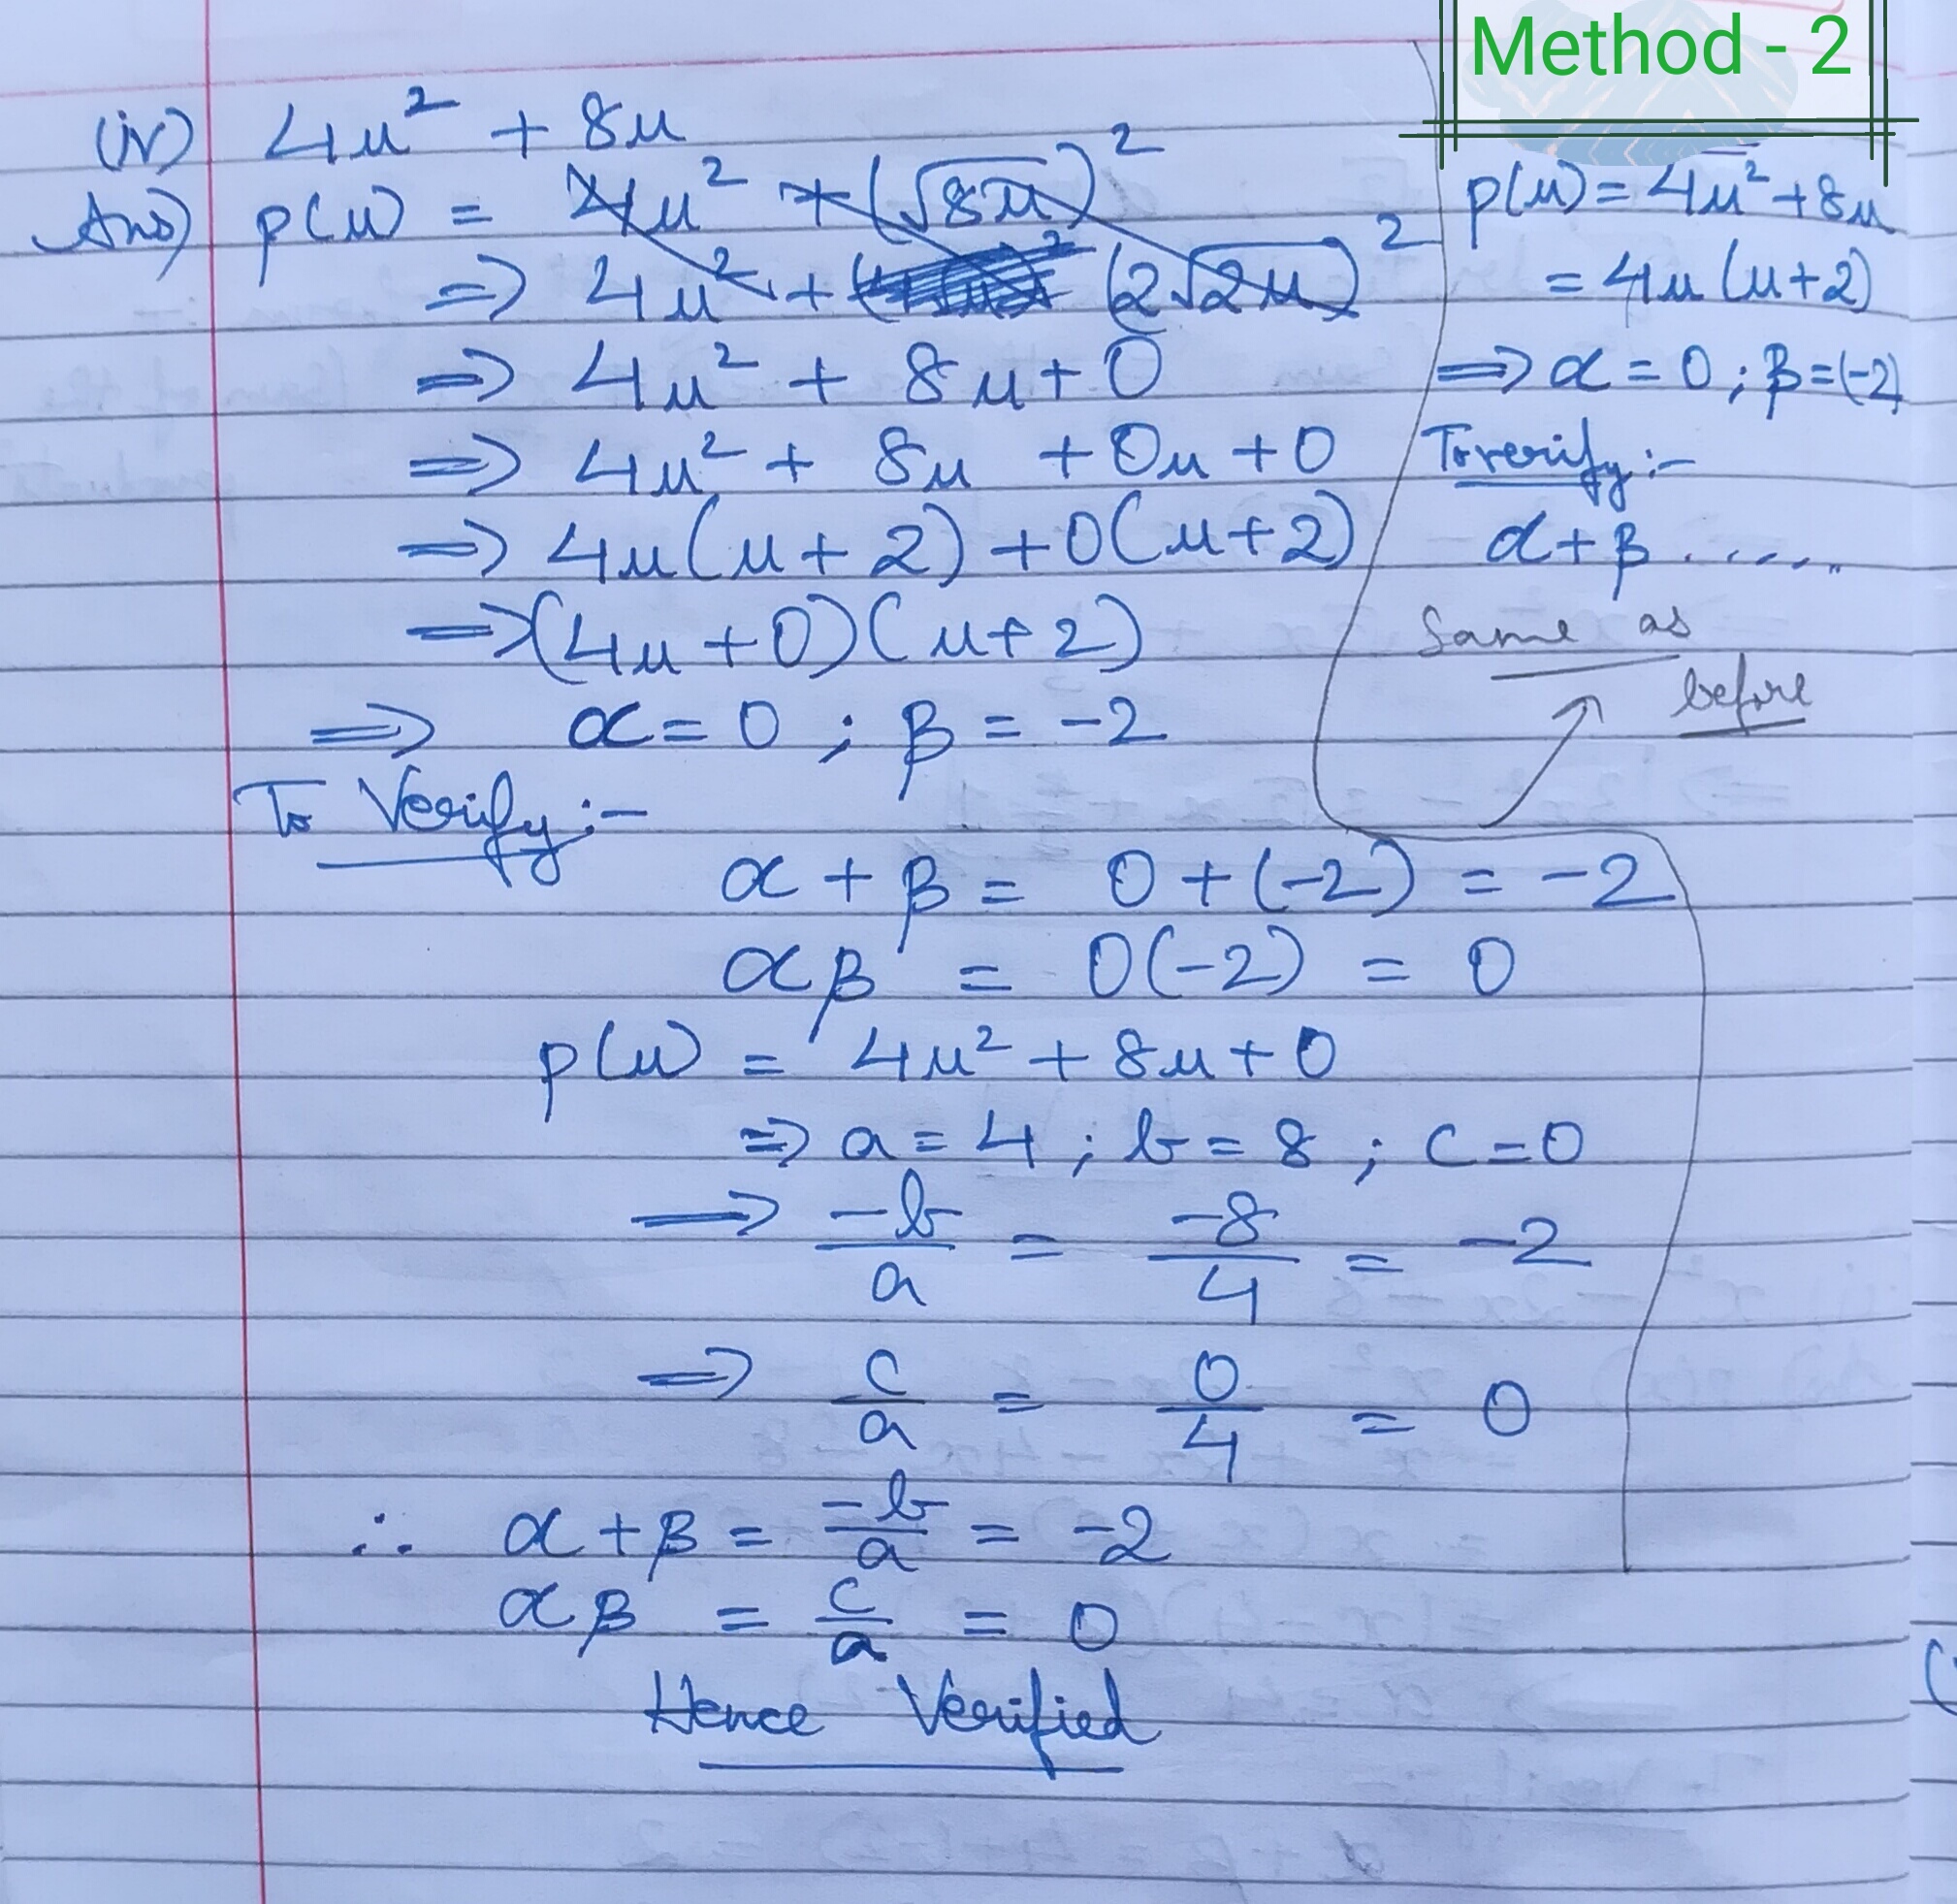 (iv) 4u² + 8u
Ans) p(u) = 4u² + (√8u)²
⇒ 4u² + (2√2u)²
⇒ 4u² + 8u + 0
⇒ 4u² + 8u + 0u + 0
⇒ 4u(u + 2) + 0(u + 2)
⇒ (4u + 0)(u + 2)
⇒ α = 0 ; β = -2
To Verify :-
α + β = 0 + (-2) = -2
αβ = 0(-2) = 0
p(u) = 4u² + 8u + 0
⇒ a = 4 ; b = 8 ; c = 0
⟹ -b/a = -8/4 = -2
⇒ c/a = 0/4 = 0
∴ α + β = -b/a = -2
αβ = c/a = 0
Hence Verified
Method - 2
p(u) = 4u² + 8u
= 4u (u+2)
⇒ α = 0 ; β = (-2)
To verify :-
α + β ......
Same as
before